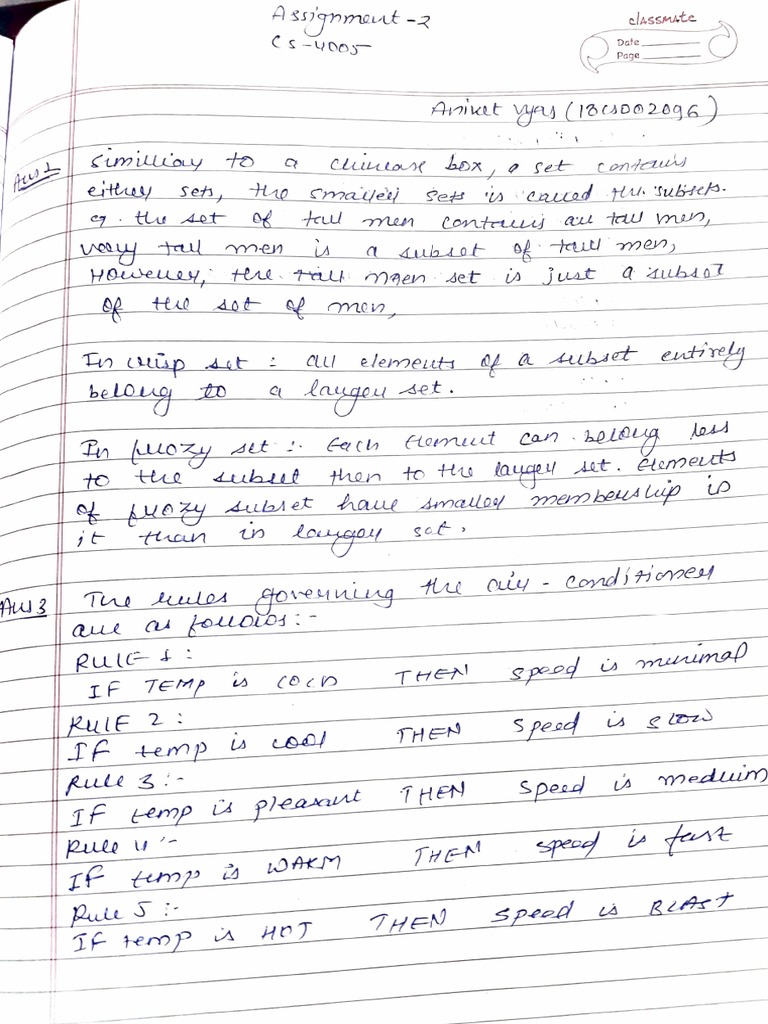 Assignment-2
CS-4005
classmate
Date
Page
Aniket Vyas (18CS002096)
Ans 1 Similliay to a chinease box, a set contains
either sets, the smaller sets is called the subsets.
eg. the set of tall men contains all tall men,
very tall men is a subset of tall men,
However, the tall men set is just a subset
of the set of men,
In crisp set : all elements of a subset entirely
belong to a larger set.
In fuzzy set :- Each element can belong less
to the subset then to the larger set. Elements
of fuzzy subset have smaller membership is
it than in larger set.
Ans 3 The rules governing the air-conditioner
are as follows:-
RULE 1 :
IF TEMP is COLD THEN speed is minimal
RULE 2 :
IF temp is cool THEN speed is slow
Rule 3 :-
IF temp is pleasant THEN speed is meduim
Rule 4 :-
IF temp is WARM THEN speed is fast
Rule 5 :-
IF temp is HOT THEN speed is BLAST